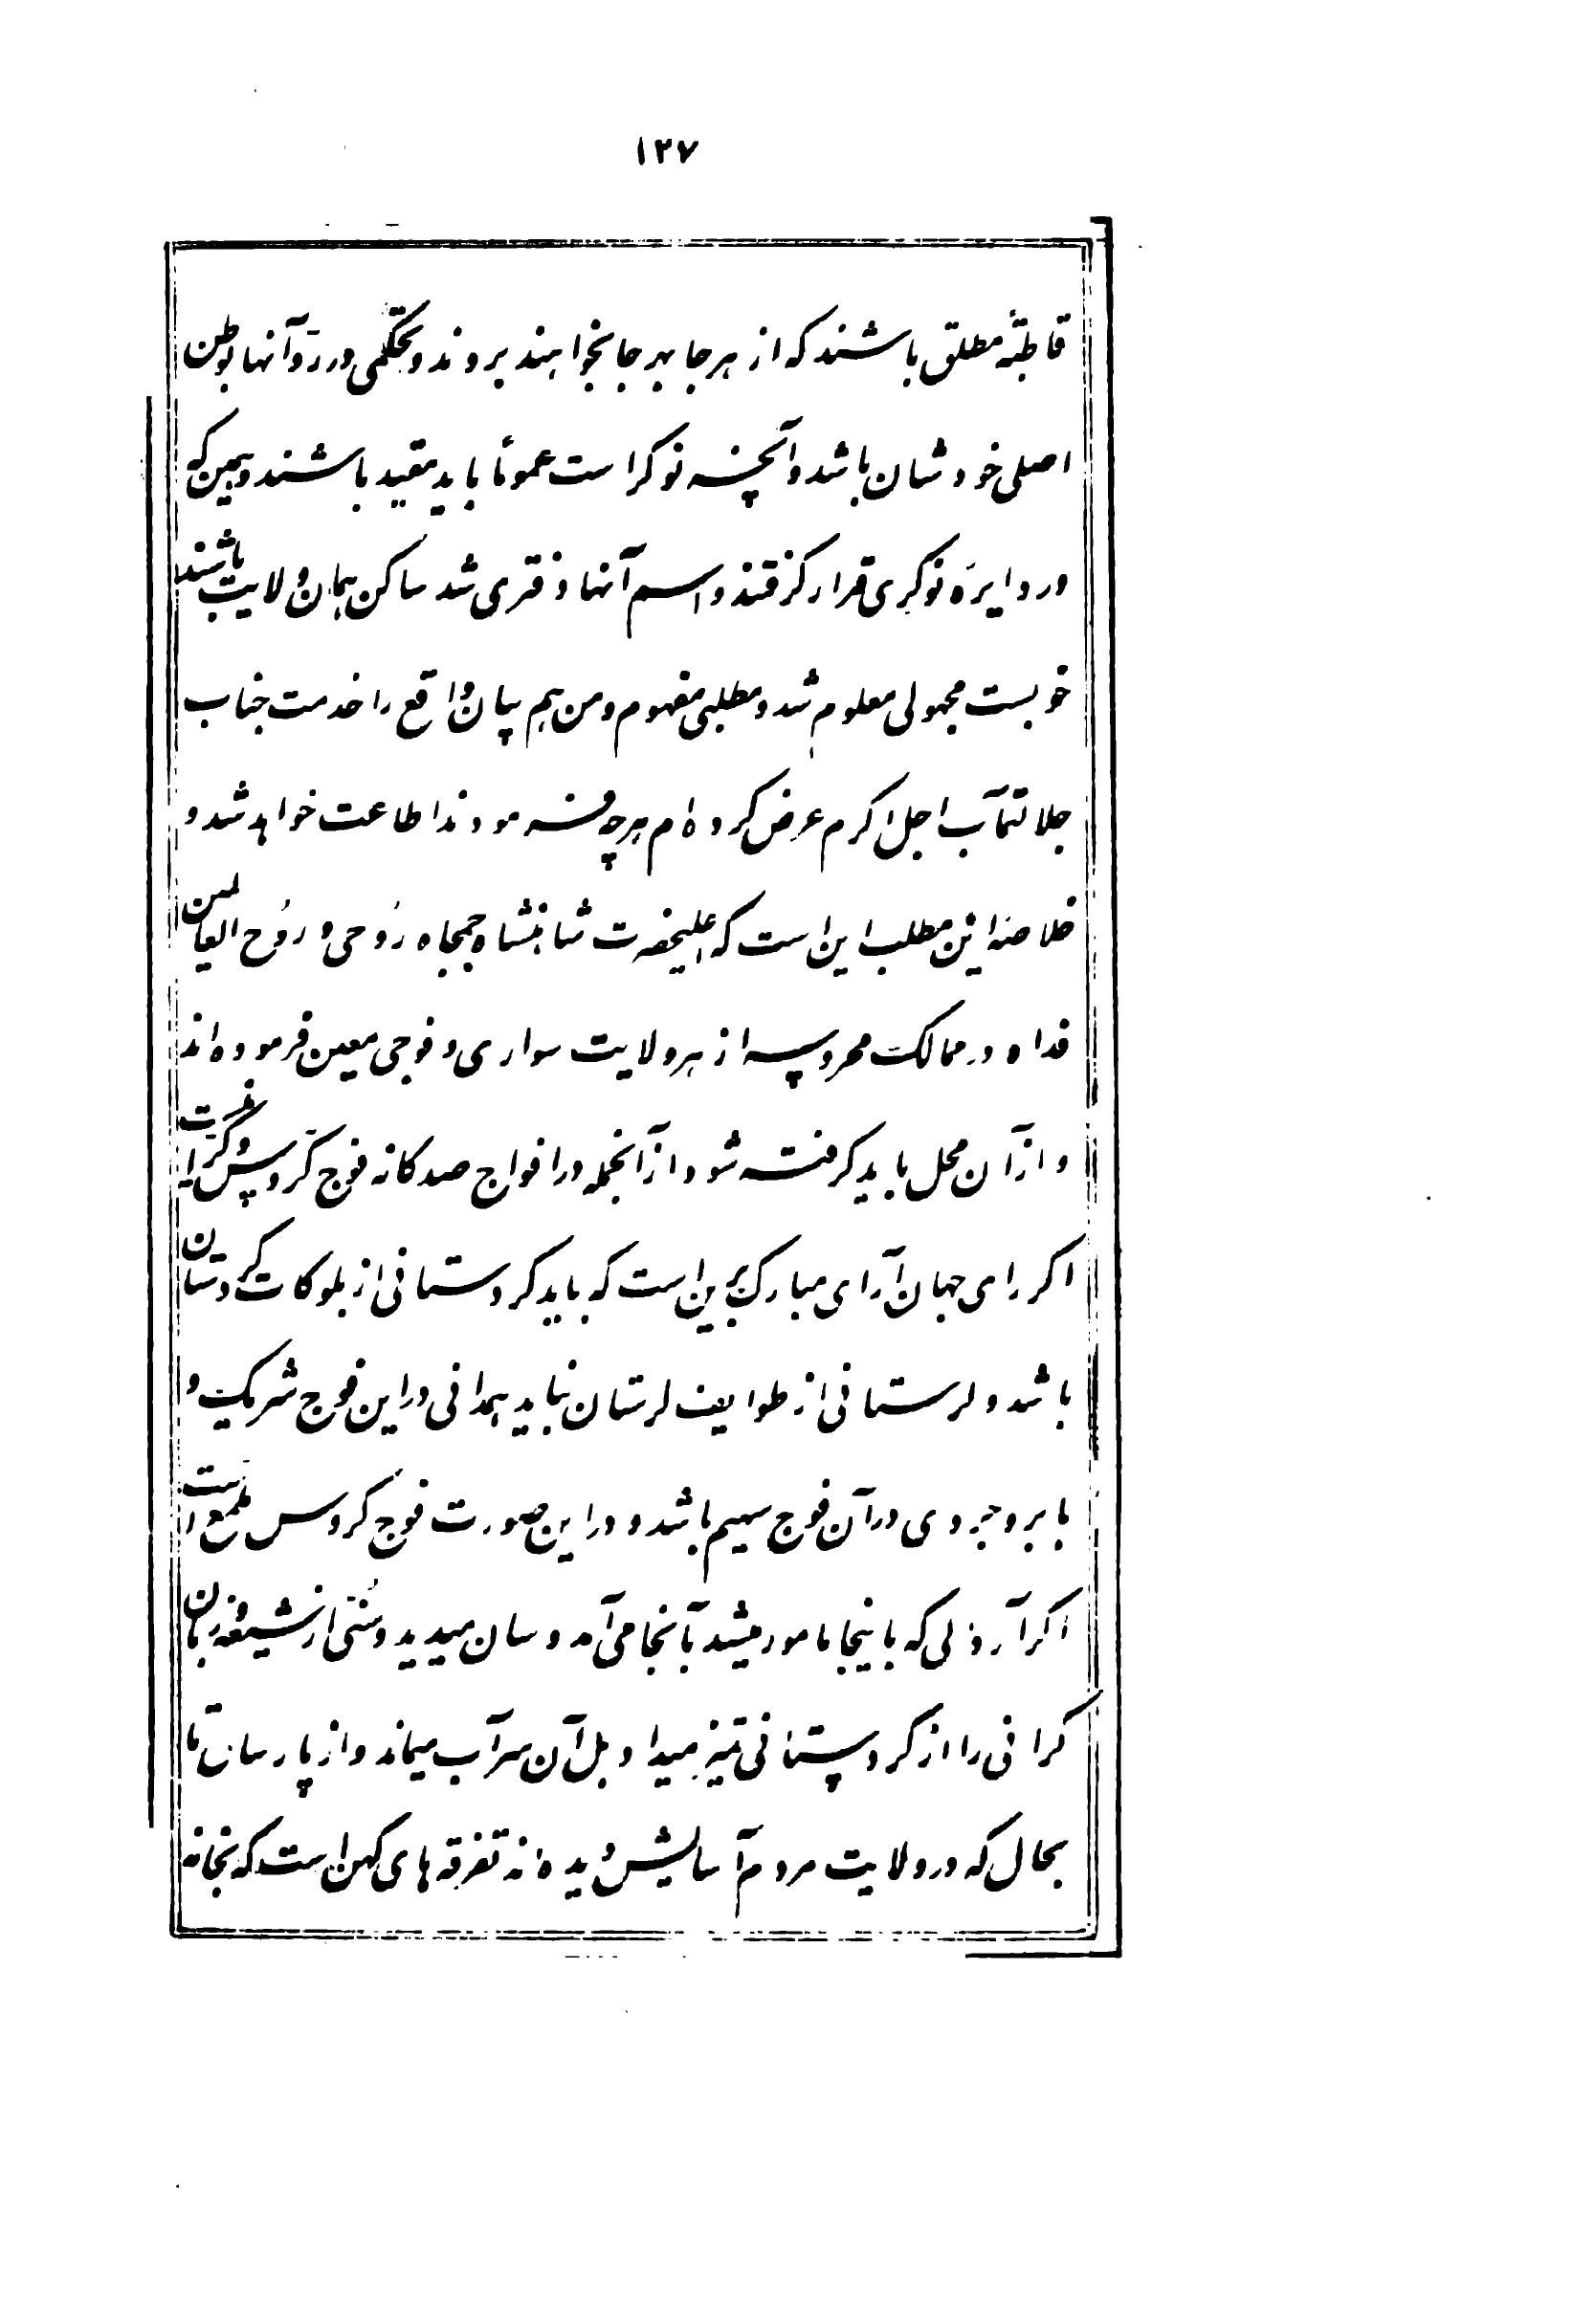 ۱۲۷
قاطبةً مطلق باشند که از هر جا بهر جا بخواهند بروند و تحکمی در ردّ آنها بوطن
اصلی خودشان باشد و آنچه نوکر است عموماً باید مقید باشند و همین که
در دایرهٔ نوکری قرار گرفتند و اسم آنها دفتری شد ساکن همان ولایت باشند
خوبست مجهولی معلوم شد و مطلبی مفهوم و من هم بیان واقع را خدمت جناب
جلالتمآب اجل اکرم عرض کرده‌ام هرچه فرمودند اطاعت خواهد شد و
خلاصهٔ این مطلب این است که اعلیحضرت شاهنشاه جمجاه روحی و روح العالمین
فداه در ممالک محروسه از هر ولایت سواری و فوجی معین فرموده‌اند
و از آن محل باید گرفته شود از آنجمله در افواج صدگانه فوج گروس و گرّا
اگر رای جهان آرای مبارک براین است که باید کردستانی از بلوکات کردستان
باشد و لرستانی از طوایف لرستان نباید همدانی در این فوج شریک و
یا بروجردی در آن فوج سهیم باشد و در این صورت فوج گروس ملمع است
اگر آردلی که باینجا مامور میشد بآنجا می‌آمد و سان میدید و سنّی از شیعه و زبان
کرانی را از کردستانی تمیز میداد بل آن سرآب میماند و از پارسال تا
بحال که در ولایت مردم آسایش دیده‌اند تفرقه‌های کهن است که بخانه